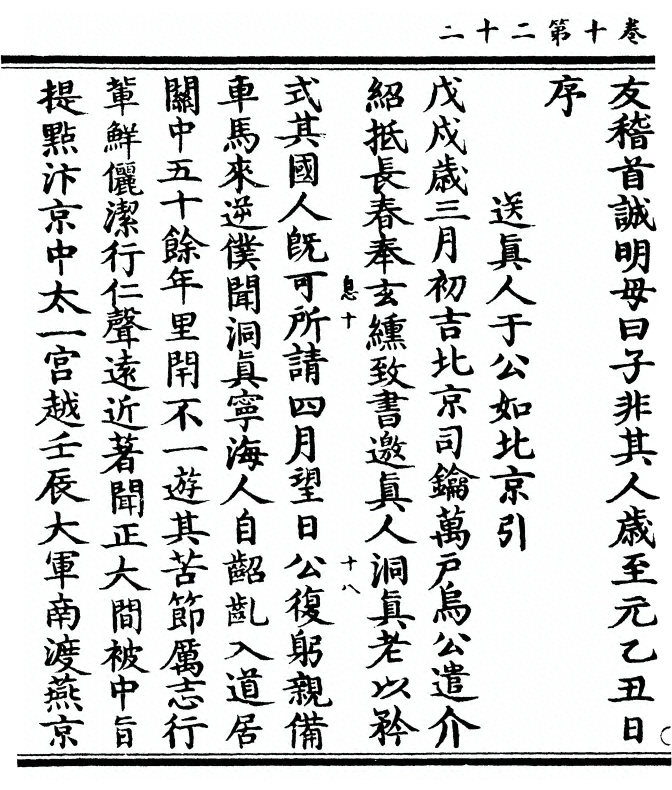 卷十第二十二
友稽首誠明毋曰子非其人歳至元乙丑日
序
送眞人于公如北京引
戊戍歲三月初吉北京司鑰萬戶烏公遣介
紹抵長春奉玄纁致書邀眞人洞眞老以矜
息十
十八
式其國人旣可所請四月望日公復躬親備
車馬來逆僕聞洞眞寧海人自齠齓入道居
關中五十餘年里閈不一遊其苦節厲志行
葷鮮儷潔行仁聲遠近著聞正大間被中旨
提點汴京中太一宮越壬辰大軍南渡燕京